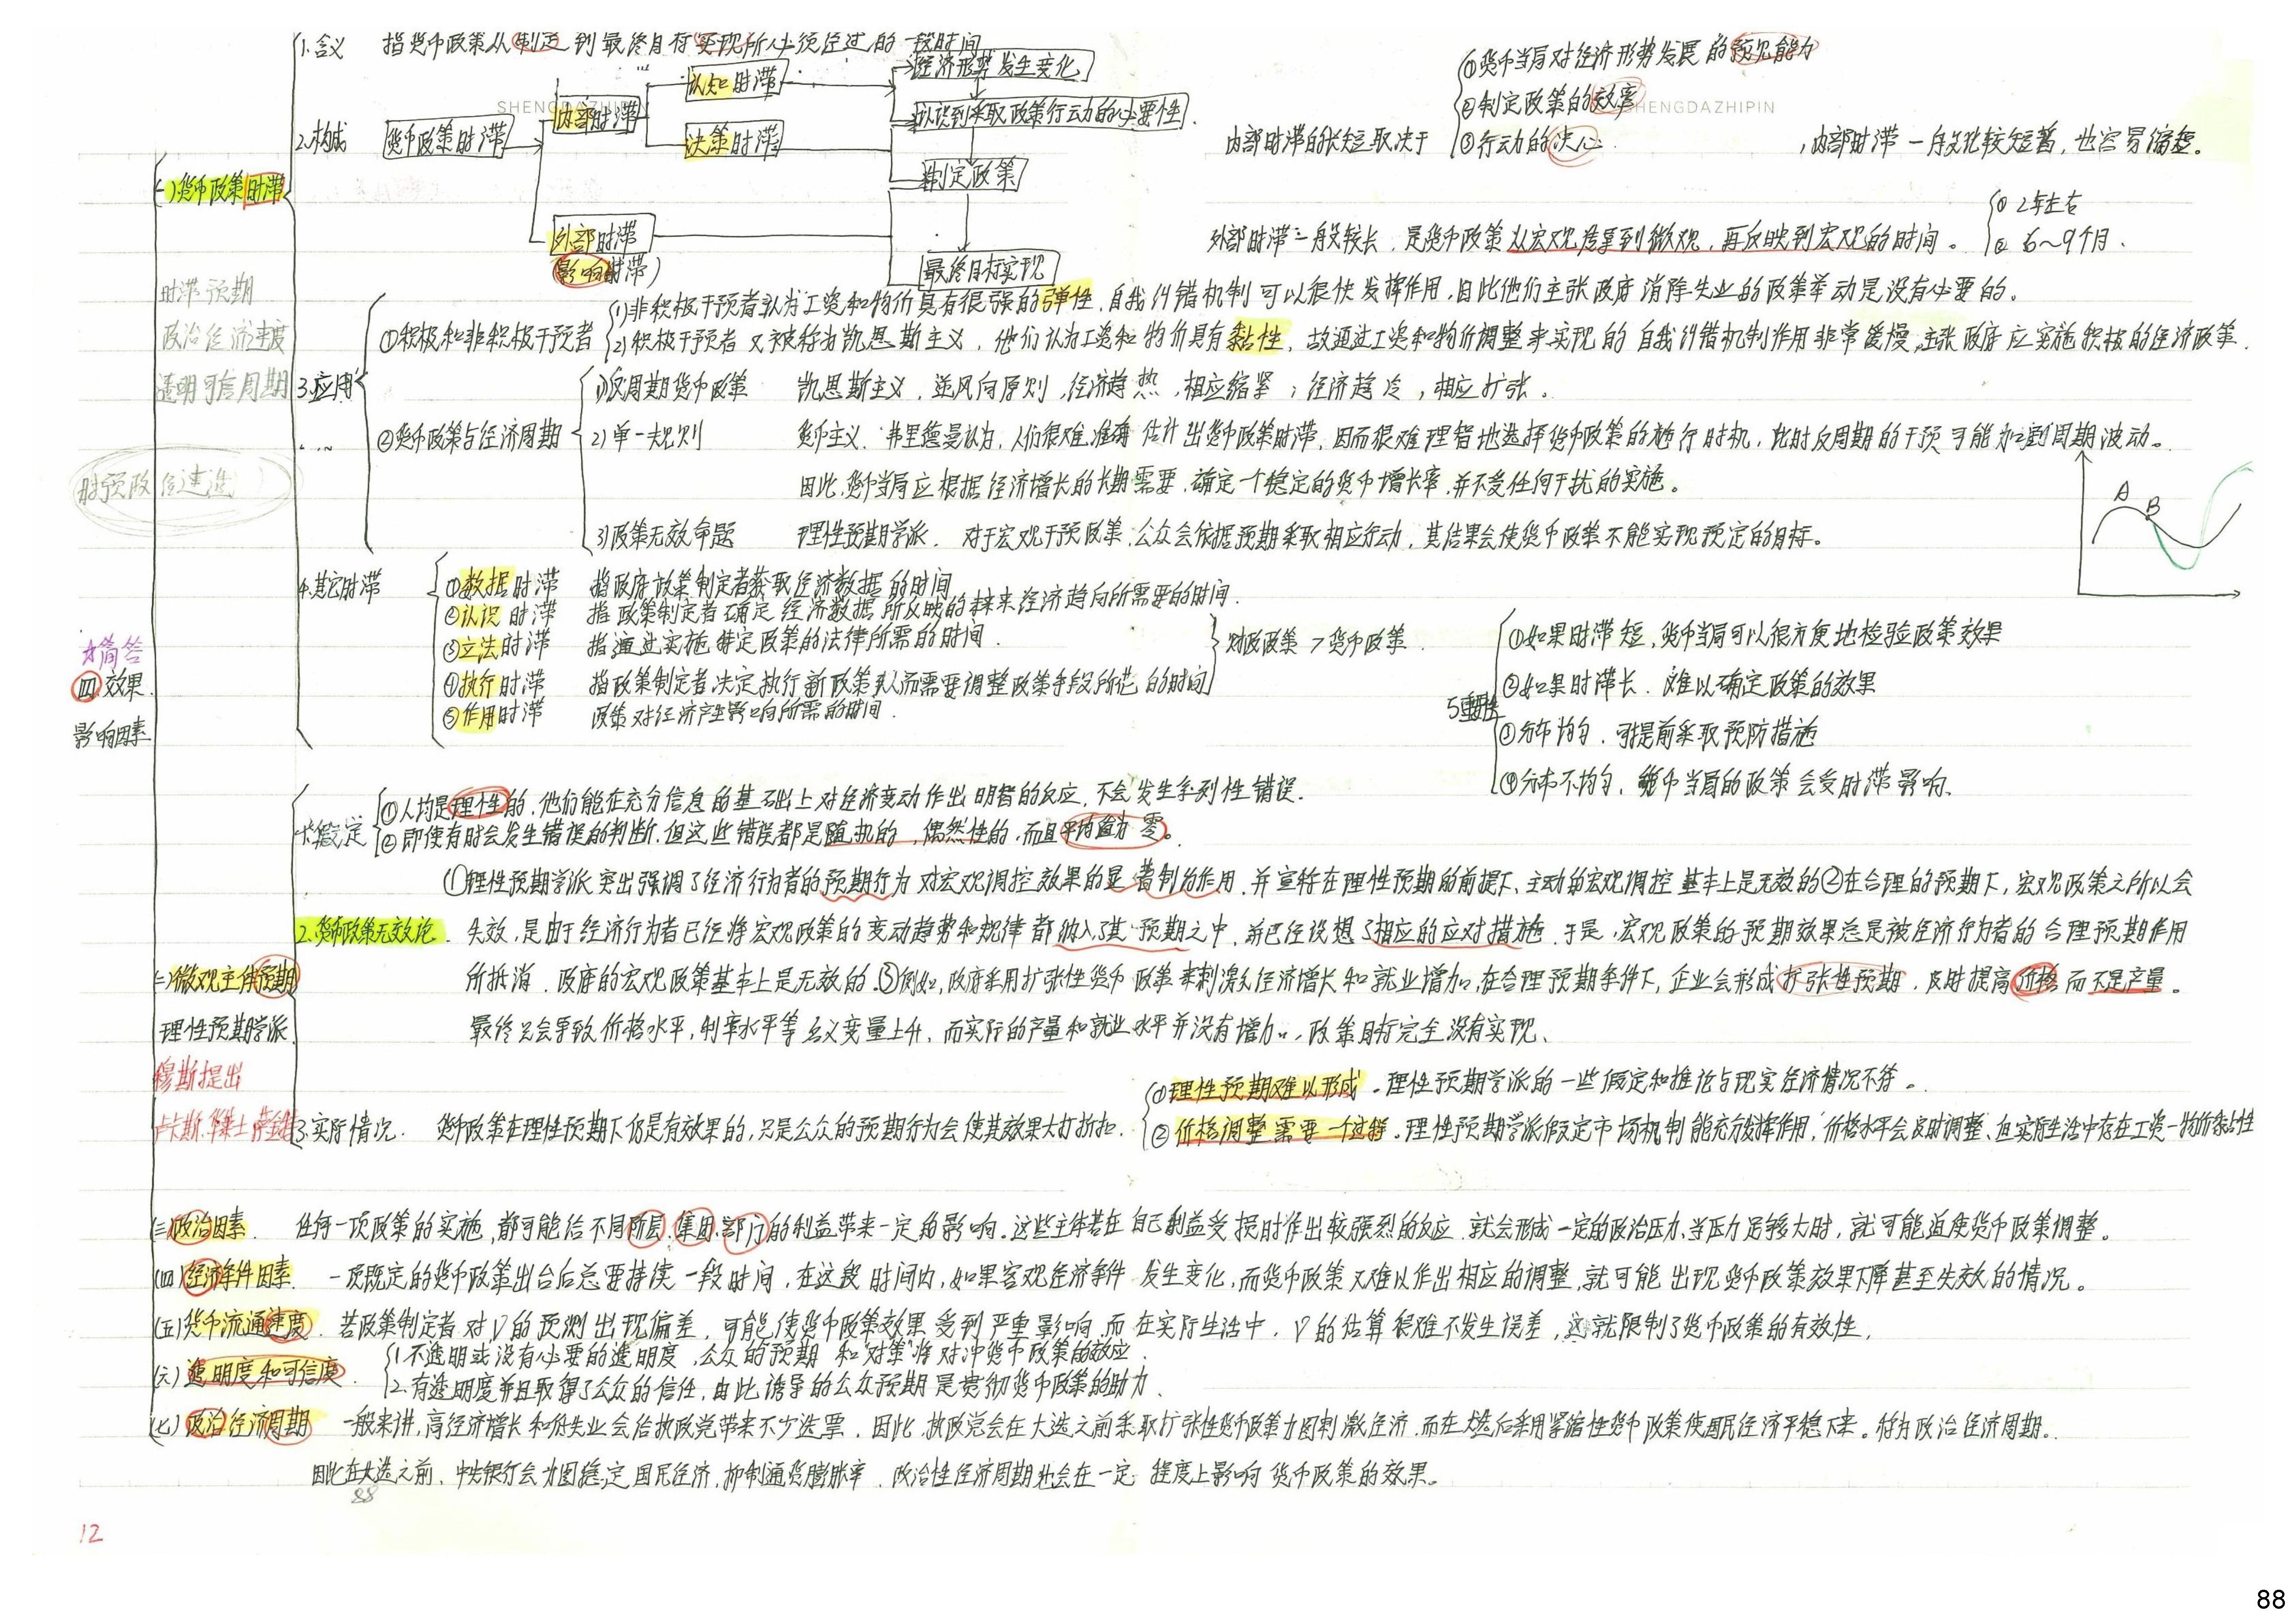 1.含义 指货币政策从制定到最终目标实现所必须经过的一段时间
SHENGDAZHIPIN
2.构成 货币政策时滞
内部时滞
认知时滞
决策时滞
外部时滞
(影响时滞)
经济形势发生变化
认识到采取政策行动的必要性
制定政策
最终目标实现
内部时滞的长短取决于
①货币当局对经济形势发展的预见能力
②制定政策的效率
SHENGDAZHIPIN
③行动的决心
,内部时滞一般比较短暂,也容易缩短。
外部时滞一般较长,是货币政策从宏观传导到微观,再反映到宏观的时间。
① 2年左右
② 6~9个月.
(一)货币政策时滞
时滞 预期
政治经济速度
透明可信周期
时预政
3.应用
①积极和非积极干预者
(1)非积极干预者认为工资和物价具有很强的弹性,自我纠错机制可以很快发挥作用,因此他们主张政府消除失业的政策举动是没有必要的。
(2)积极干预者又被称为凯恩斯主义,他们认为工资和物价具有黏性,故通过工资和物价调整来实现的自我纠错机制作用非常缓慢,主张政府应实施积极的经济政策.
②货币政策与经济周期
1)反周期货币政策 凯恩斯主义,逆风向原则,经济趋热,相应缩紧;经济趋冷,相应扩张。
2)单一规则 货币主义.弗里德曼认为,人们很难准确估计出货币政策时滞,因而很难理智地选择货币政策的施行时机,此时反周期的干预可能加剧周期波动。
因此,货币当局应根据经济增长的长期需要,确定一个稳定的货币增长率,并不受任何干扰的实施。
3)政策无效命题 理性预期学派. 对于宏观干预政策,公众会依据预期采取相应行动,其结果会使货币政策不能实现预定的目标。
A
B
4.其它时滞
①数据时滞 指政府政策制定者获取经济数据的时间
②认识时滞 指政策制定者确定经济数据所反映的未来经济趋向所需要的时间.
③立法时滞 指通过实施特定政策的法律所需的时间.
④执行时滞 指政策制定者决定执行新政策从而需要调整政策手段所花的时间
⑤作用时滞 政策对经济产生影响所需的时间.
财政政策 > 货币政策.
5重要性
①如果时滞短,货币当局可以很方便地检验政策效果
②如果时滞长.难以确定政策的效果
③分布均匀.可提前采取预防措施
④分布不均匀.货币当局的政策会受时滞影响.
简答
四.效果
影响因素
1.假定
①人均是理性的,他们能在充分信息的基础上对经济变动作出明智的反应,不会发生系列性错误.
②即使有时会发生错误的判断,但这些错误都是随机的,偶然性的,而且平均值为零。
2.货币政策无效论.
①理性预期学派突出强调了经济行为者的预期行为对宏观调控效果的显著制约作用,并宣称在理性预期的前提下,主动的宏观调控基本上是无效的②在合理的预期下,宏观政策之所以会
失效,是由于经济行为者已经将宏观政策的变动趋势和规律都纳入了其预期之中,并已经设想了相应的应对措施.于是,宏观政策的预期效果总是被经济行为者的合理预期作用
所抵消.政府的宏观政策基本上是无效的.③例如,政府采用扩张性货币政策来刺激经济增长和就业增加,在合理预期条件下,企业会形成扩张性预期,及时提高价格而不是产量。
最终只会导致价格水平,利率水平等名义变量上升,而实际的产量和就业水平并没有增加.,政策目标完全没有实现.
(二)微观主体预期
理性预期学派
穆斯提出
3.实际情况. 货币政策在理性预期下仍是有效果的,只是公众的预期行为会使其效果大打折扣.
①理性预期难以形成.理性预期学派的一些假定和推论与现实经济情况不符。
②价格调整需要一个过程.理性预期学派假定市场机制能充分发挥作用,价格水平会及时调整、但实际生活中存在工资—物价黏性
(三)政治因素. 任何一项政策的实施,都可能给不同阶层.集团.部门的利益带来一定的影响.这些主体若在自己利益受损时作出较强烈的反应.就会形成一定的政治压力,当压力足够大时,就可能迫使货币政策调整。
(四)经济条件因素. 一项既定的货币政策出台后总要持续一段时间,在这段时间内,如果客观经济条件发生变化,而货币政策又难以作出相应的调整,就可能出现货币政策效果下降甚至失效的情况。
(五)货币流通速度. 若政策制定者对V的预测出现偏差,可能使货币政策效果受到严重影响,而在实际生活中,V的估算很难不发生误差,这就限制了货币政策的有效性,
(六)透明度和可信度.
1.不透明或没有必要的透明度,公众的预期和"对策"将对冲货币政策的效应.
2.有透明度并且取得了公众的信任,由此诱导的公众预期是贯彻货币政策的助力.
(七)政治经济周期 一般来讲,高经济增长和低失业会给执政党带来不少选票.因此,执政党会在大选之前采取扩张性货币政策力图刺激经济.而在大选后采用紧缩性货币政策使国民经济平稳下来。称为政治经济周期.
因此在大选之前,中央银行会力图稳定国民经济,抑制通货膨胀率.政治性经济周期也会在一定程度上影响货币政策的效果。
88
12
88